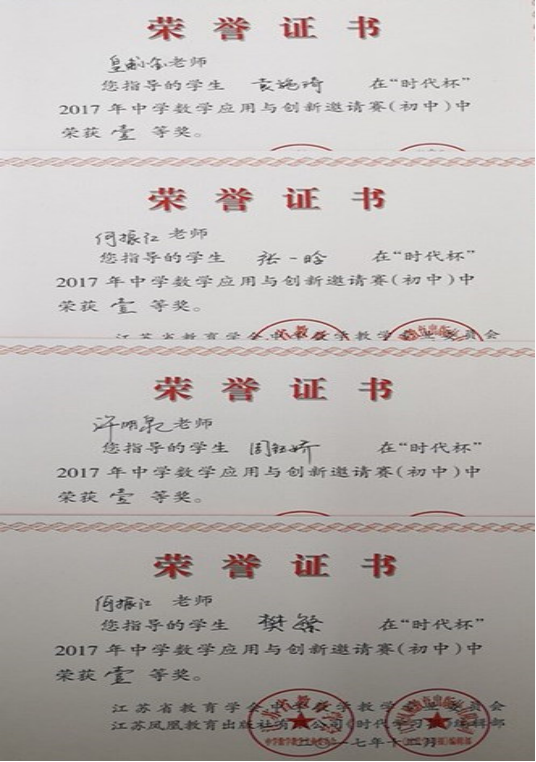 荣誉证书
老师
您指导的学生 在“时代杯”
2017年中学数学应用与创新邀请赛(初中)中
荣获 壹 等奖。
荣誉证书
何振江 老师
您指导的学生 张一晗 在“时代杯”
2017年中学数学应用与创新邀请赛(初中)中
荣获 壹 等奖。
江苏省教育学会中学数学教学专业委员会
荣誉证书
许明泉老师
您指导的学生 周钰娇 在“时代杯”
2017年中学数学应用与创新邀请赛(初中)中
荣获 壹 等奖。
荣誉证书
何振江 老师
您指导的学生 樊繁 在“时代杯”
2017年中学数学应用与创新邀请赛(初中)中
荣获 壹 等奖。
江苏省教育学会中学数学教学专业委员会
江苏凤凰教育出版社有限公司《时代学习报》编辑部
二〇一七年十二月